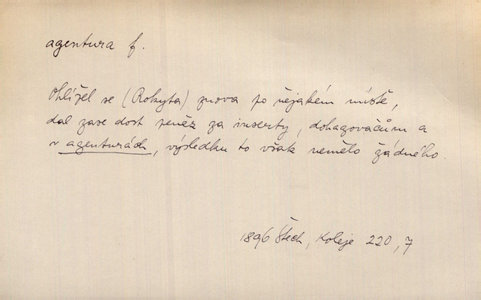 agentura f.
Ohlížel se (Rokyta) znova po nějakém místě,
dal zase dost peněz za inserty, dohazovačům a
v agenturách, výsledku to však nemělo žádného.
1896 Štech, Koleje 220, 7